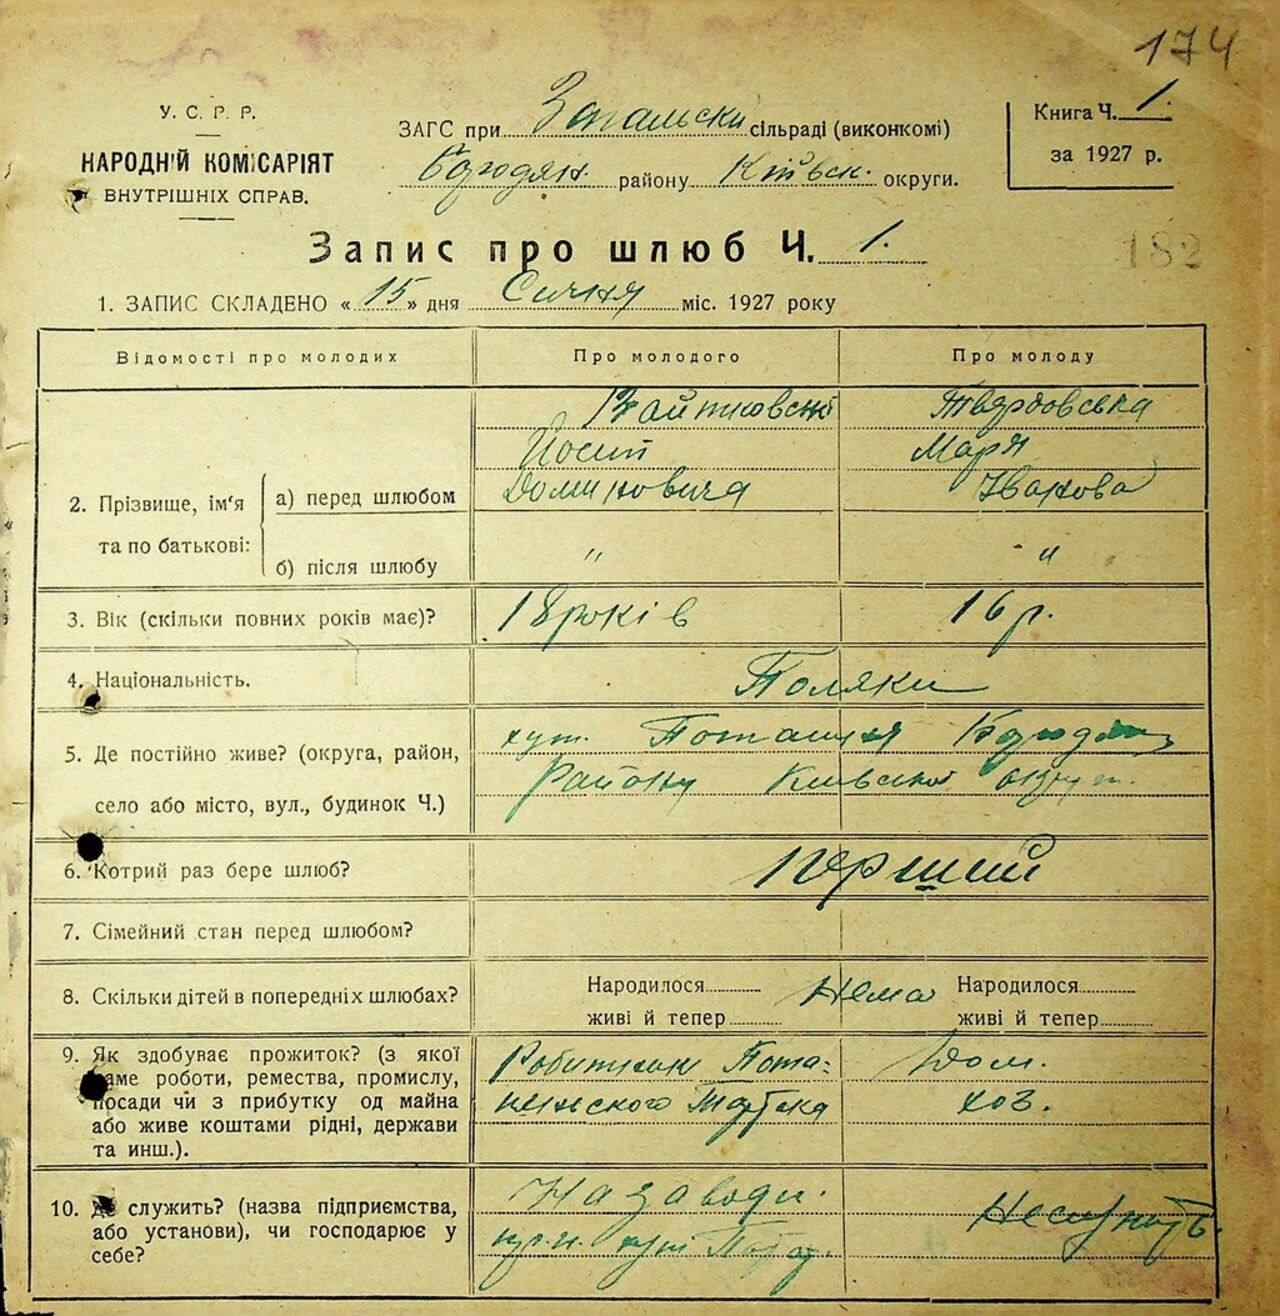 174
У. С. Р. Р.
НАРОДНІЙ КОМІСАРІЯТ
ВНУТРІШНІХ СПРАВ.
ЗАГС при сільраді (виконкомі)
Бородян. району Київск. округи.
Книга Ч. 1.
за 1927 р.
Запис про шлюб Ч. 1.
182
1. ЗАПИС СКЛАДЕНО « 15 » дня Січня міс. 1927 року
Відомості про молодих Про молодого Про молоду
Твердовська
Йосип Марʼя
2. Прізвище, ім‘я та по батькові: а) перед шлюбом Івановa
б) після шлюбу " "
3. Вік (скільки повних років має)? 18 років 16 р.
4. Національність. Поляки
5. Де постійно живе? (округа, район, хут. Поташня
село або місто, вул., будинок Ч.) Району Київської округ.
6. Котрий раз бере шлюб? Перший
7. Сімейний стан перед шлюбом?
8. Скільки дітей в попередніх шлюбах? Народилося Нема Народилося
живі й тепер живі й тепер
9. Як здобуває прожиток? (з якої Дом.
саме роботи, ремества, промислу,
посади чи з прибутку од майна хоз.
або живе коштами рідні, держави
та инш.).
10. Де служить? (назва підприємства, На заводи.
або установи), чи господарює у
себе?